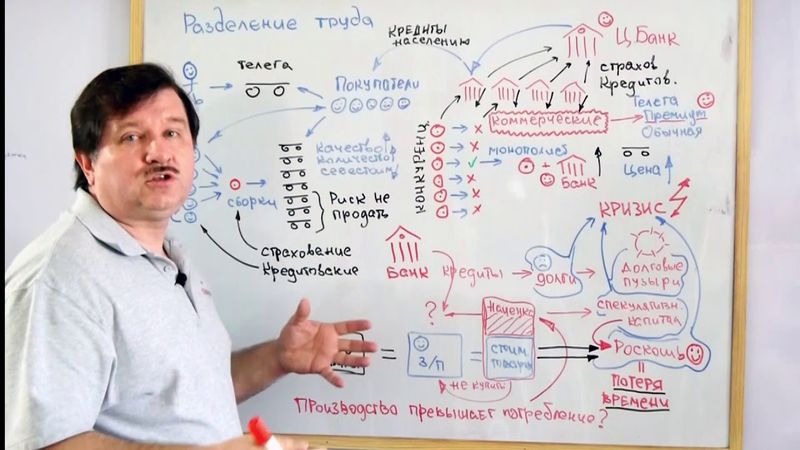 Разделение труда
Кредиты
населению
Ц Банк
Телега
Покупатели
страхов
кредитов.
Коммерческие
Телега
Премиум
Обычная
Качество
Количество
Себестоим
Конкуренц
монополист
+
Банк
Цена
сборка
Риск не
продать
Страхование
Кредитование
Банк
Кредиты
долги
Кризис
Долговые
пузыри
Спекулятивн.
капитал
?
Наценка
=
З/П
=
стоим
товара
Роскошь
=
потеря
времени
не купить
Производство превышает потребление?